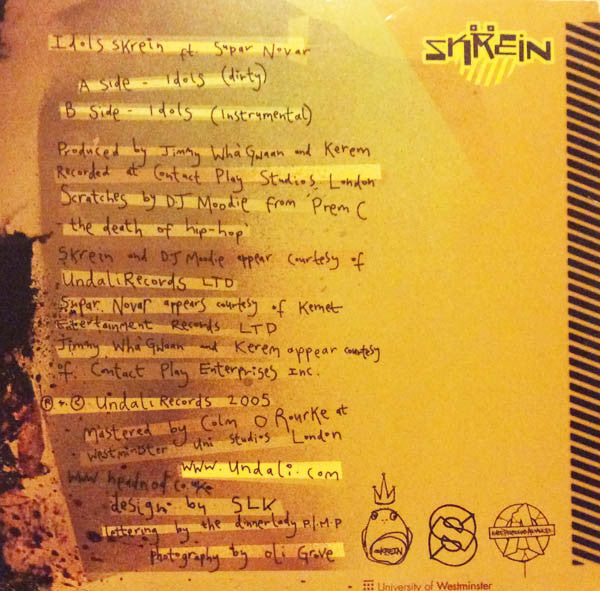 Idols Skrein ft. Supar Novar
SKREIN
A Side - Idols (dirty)
B Side - Idols (Instrumental)
Produced by Jimmy Wha'Gwaan and Kerem
Recorded at Contact Play Studios, London
Scratches by DJ Moodie from 'Prem C
- the death of hip-hop'
Skrein and DJ Moodie appear courtesy of
Undali Records LTD
Supar Novar appears courtesy of Kemet
Entertainment Records LTD
Jimmy Wha'Gwaan and Kerem appear courtesy
of Contact Play Enterprises Inc.
℗ & © Undali Records 2005
Mastered by Colm O Rourke at
Westminster Uni Studios London
www.undali.com
www.headnod.co.uk
design by SLK
lettering by the dinnerlady p.I.M.P
photography by Oli Grove
SKREIN
University of Westminster